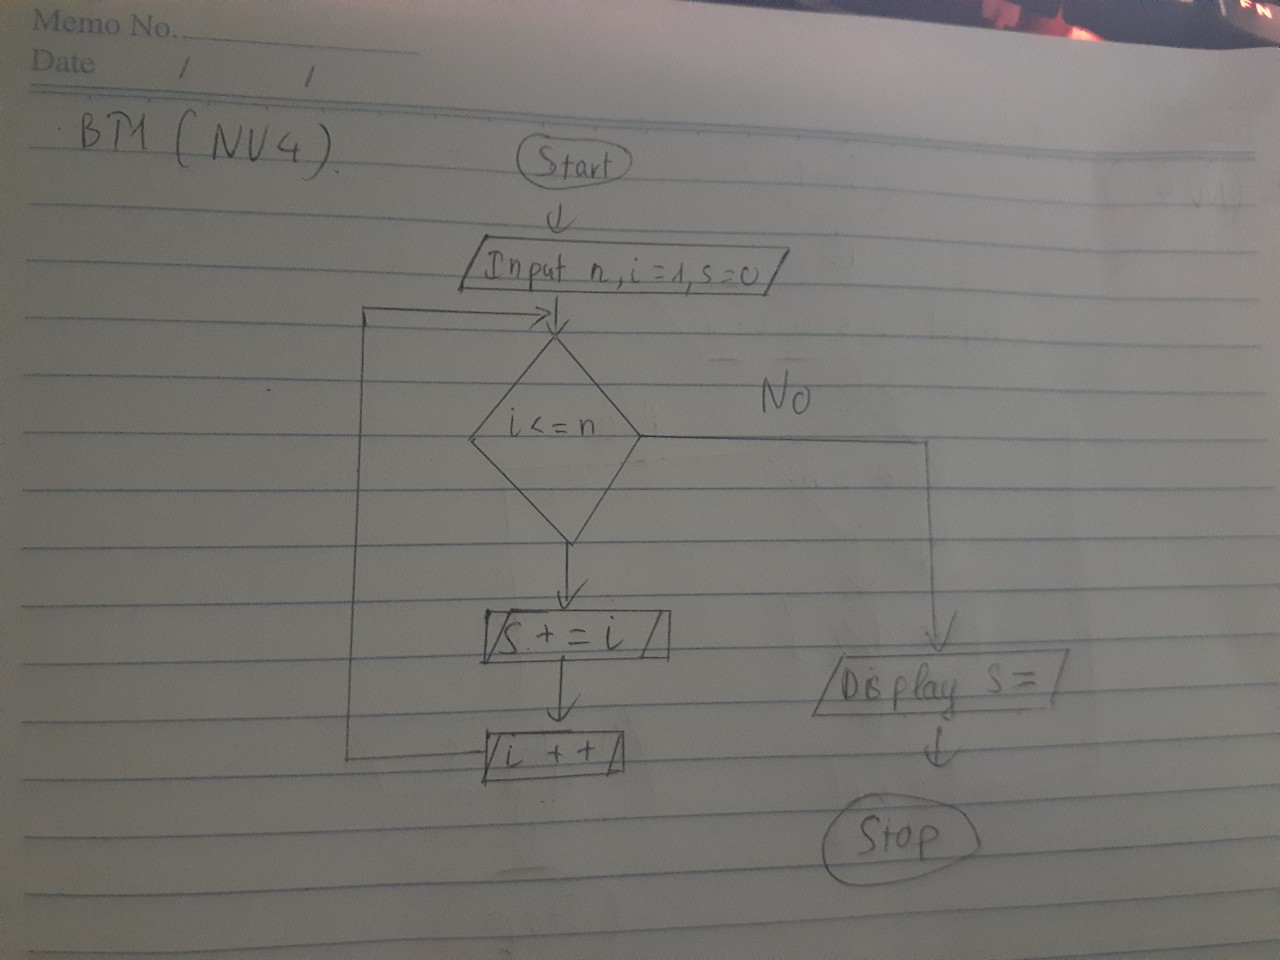 Memo No.
Date / /
BT1 (NV4).
Start
Input n, i=1, s=0
i <= n
No
S += i
i ++
Display s=
Stop